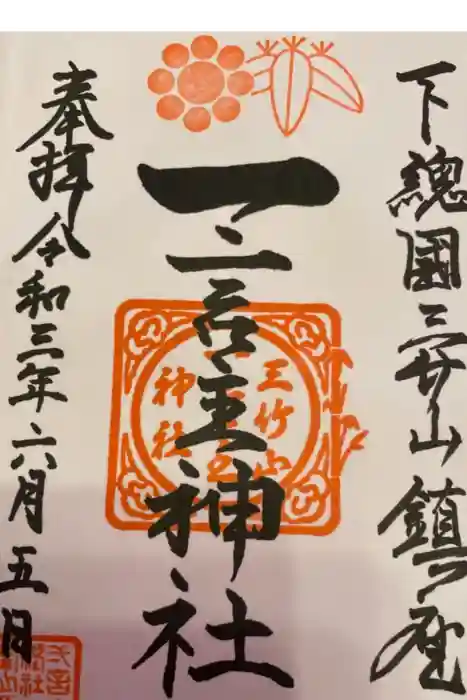 下総國三竹山鎮座
一言主神社
奉拝令和三年六月五日
三竹山
神社